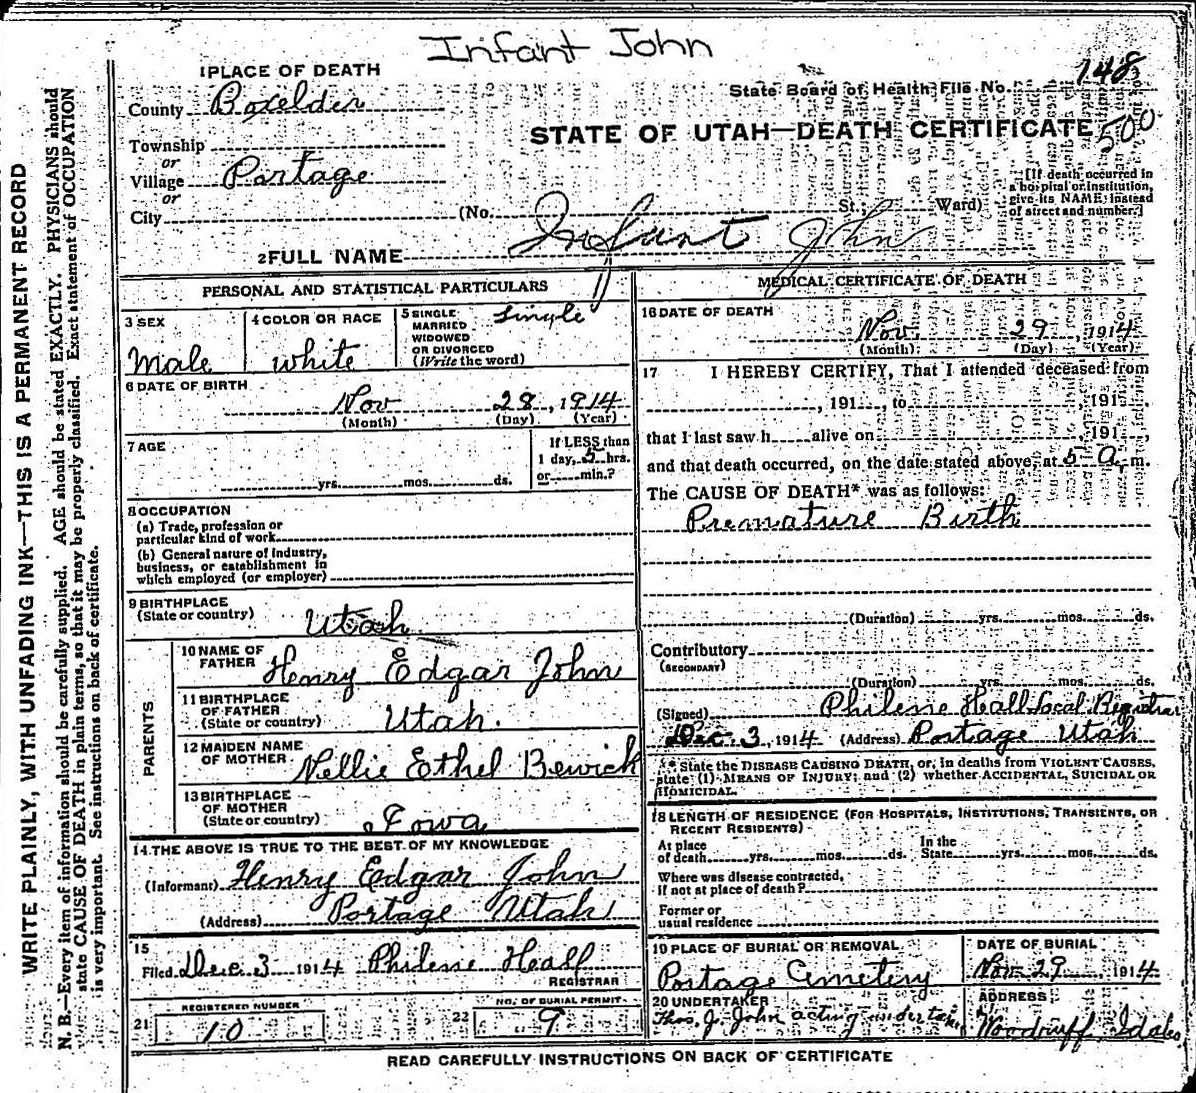 Infant John
1 PLACE OF DEATH
148
State Board of Health File No.
County Boxelder
STATE OF UTAH—DEATH CERTIFICATE 500
Township
or
Village Portage
or
City
(No. St.; Ward)
[If death occurred in a hospital or institution, give its NAME instead of street and number.]
2 FULL NAME Infant John
PERSONAL AND STATISTICAL PARTICULARS
3 SEX
Male
4 COLOR OR RACE
white
5 SINGLE
MARRIED
WIDOWED
OR DIVORCED
(Write the word)
Single
6 DATE OF BIRTH
Nov 28, 1914
(Month) (Day) (Year)
7 AGE
yrs. mos. ds.
If LESS than
1 day, 5 hrs.
or min.?
8 OCCUPATION
(a) Trade, profession or
particular kind of work
(b) General nature of industry,
business, or establishment in
which employed (or employer)
9 BIRTHPLACE
(State or country)
Utah
PARENTS
10 NAME OF
FATHER
Henry Edgar John
11 BIRTHPLACE
OF FATHER
(State or country)
Utah.
12 MAIDEN NAME
OF MOTHER
Nellie Ethel Bewick
13 BIRTHPLACE
OF MOTHER
(State or country)
Iowa
14 THE ABOVE IS TRUE TO THE BEST OF MY KNOWLEDGE
(Informant) Henry Edgar John
(Address) Portage Utah
15
Filed Dec. 3 1914 Philene Heall
REGISTRAR
REGISTERED NUMBER
21 10
NO. OF BURIAL PERMIT
22 9
MEDICAL CERTIFICATE OF DEATH
16 DATE OF DEATH
Nov. 29, 1914
(Month) (Day) (Year)
17 I HEREBY CERTIFY, That I attended deceased from
, 191 , to 191 ,
that I last saw h alive on , 191 ,
and that death occurred, on the date stated above, at 5 A. m.
The CAUSE OF DEATH* was as follows:
Premature Birth
(Duration) yrs. mos. ds.
Contributory
(SECONDARY)
(Duration) yrs. mos. ds.
(Signed) Philene Heall Local Registrar
Dec. 3, 1914 (Address) Portage Utah
* State the DISEASE CAUSING DEATH, or, in deaths from VIOLENT CAUSES,
state (1) MEANS OF INJURY; and (2) whether ACCIDENTAL, SUICIDAL OR
HOMICIDAL.
18 LENGTH OF RESIDENCE (FOR HOSPITALS, INSTITUTIONS, TRANSIENTS, OR
RECENT RESIDENTS)
At place
of death yrs. mos. ds.
In the
State yrs. mos. ds.
Where was disease contracted,
if not at place of death?
Former or
usual residence
19 PLACE OF BURIAL OR REMOVAL
Portage Cemetery
DATE OF BURIAL
Nov 29, 1914
20 UNDERTAKER
Thos. J. John acting undertaker
ADDRESS
Woodruff, Idaho
READ CAREFULLY INSTRUCTIONS ON BACK OF CERTIFICATE
WRITE PLAINLY, WITH UNFADING INK—THIS IS A PERMANENT RECORD
N. B.—Every item of information should be carefully supplied. AGE should be stated EXACTLY. PHYSICIANS should
state CAUSE OF DEATH in plain terms, so that it may be properly classified. Exact statement of OCCUPATION
is very important. See instructions on back of certificate.